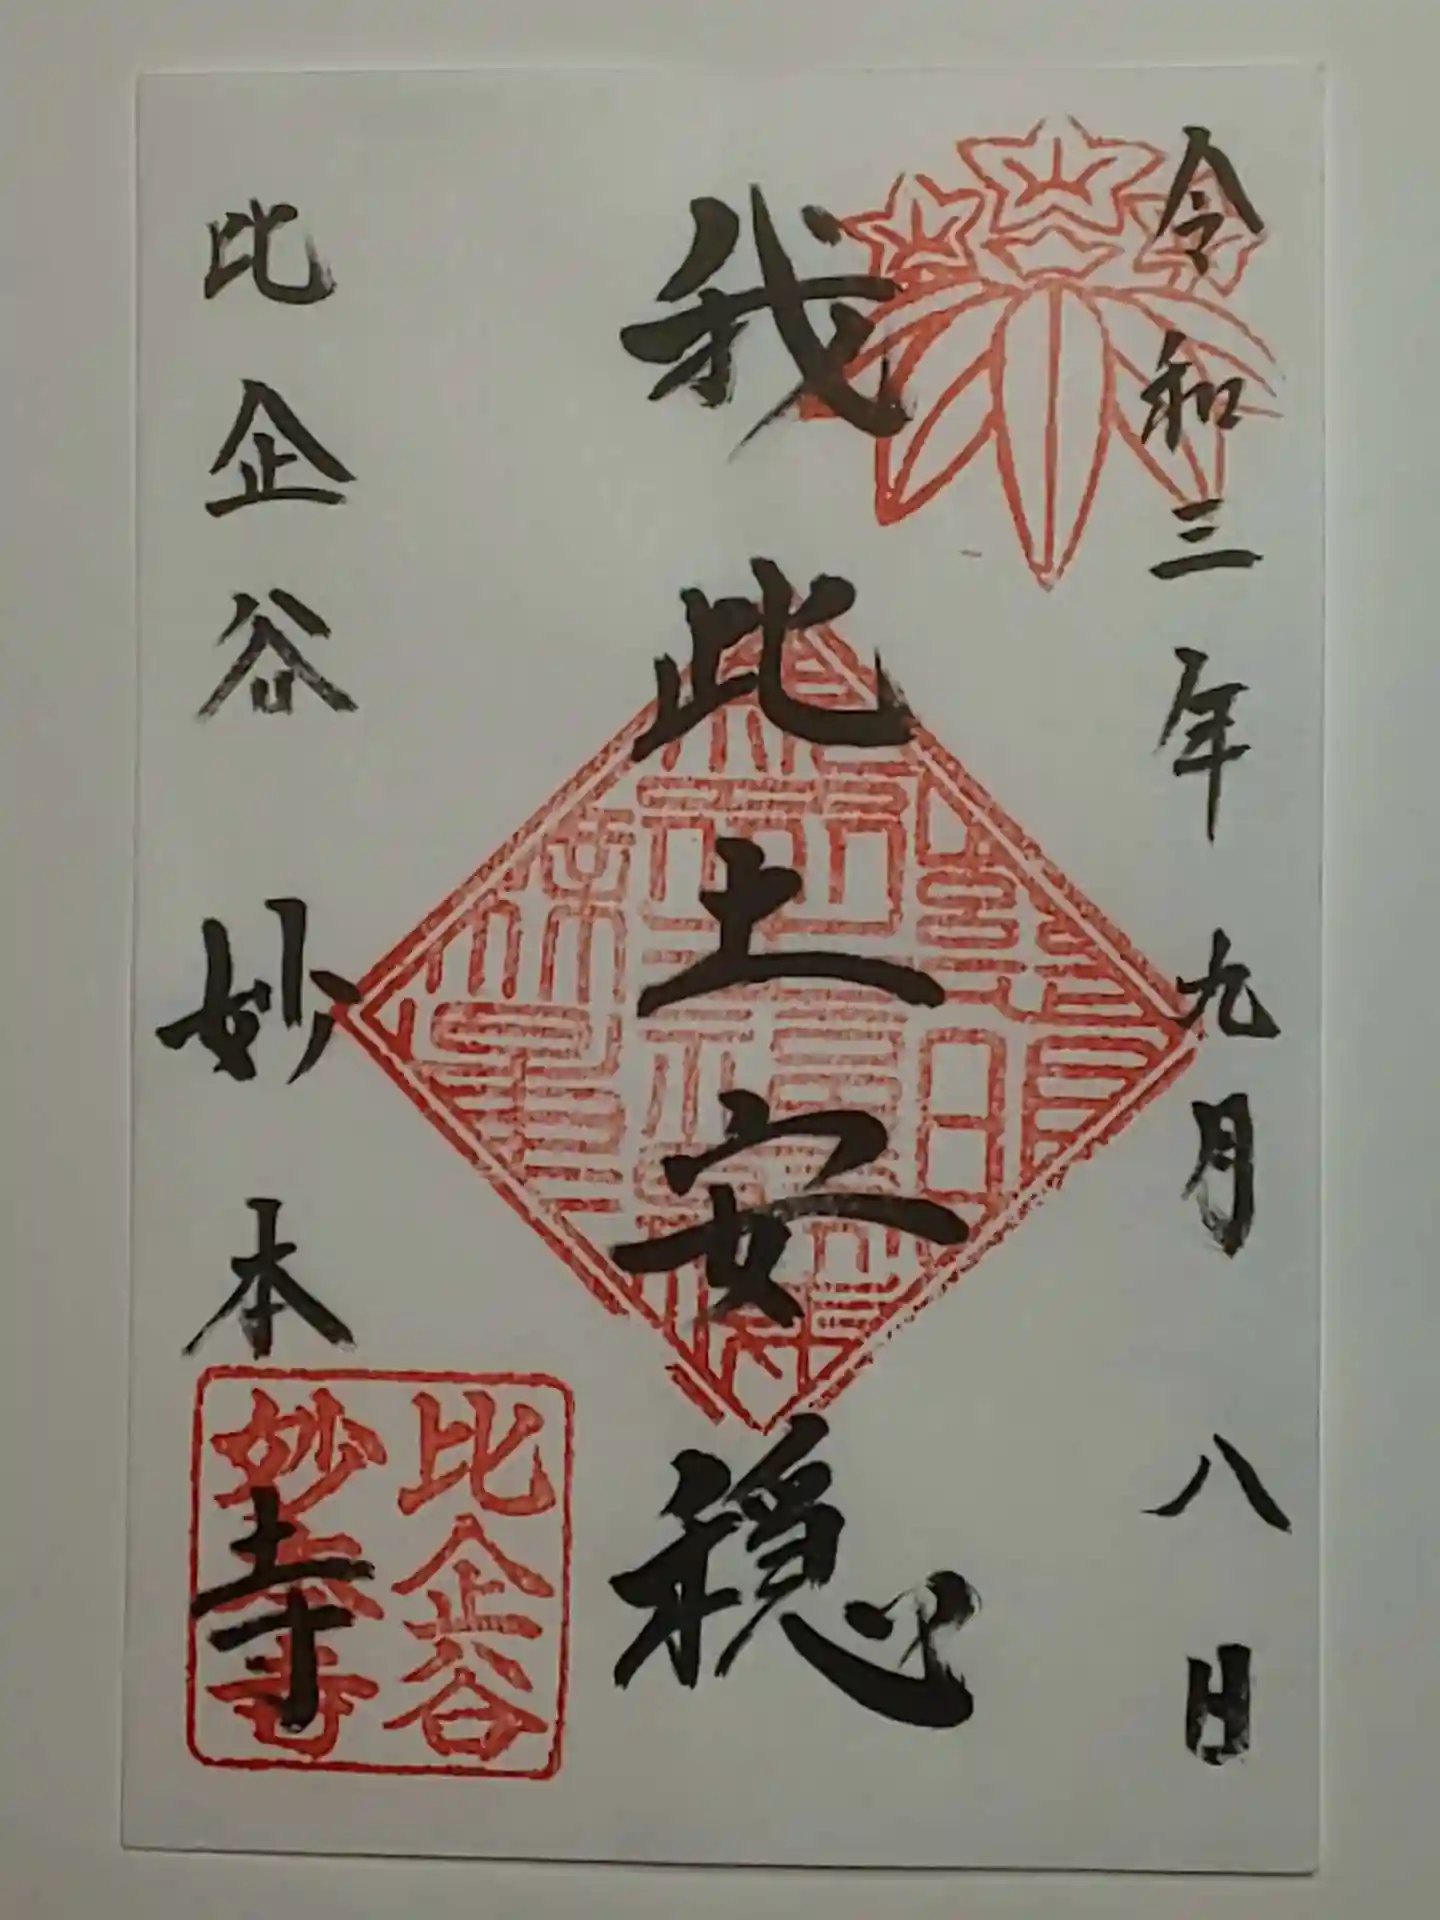 令和三年九月八日
我此土安穏
比企谷 妙本寺
比企谷
妙本寺